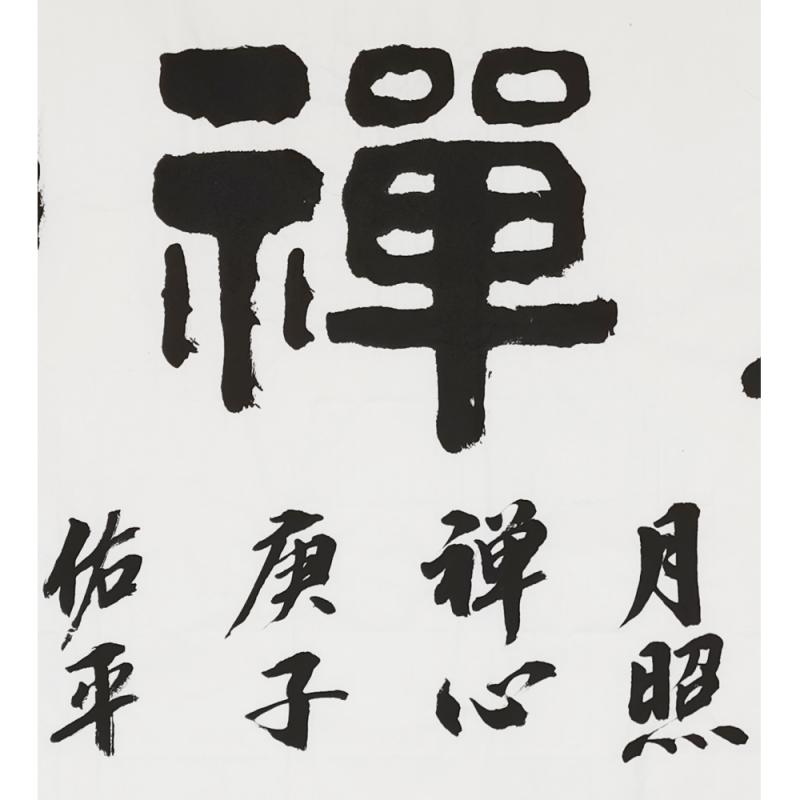 禪
月照
禅心
庚子
佑平